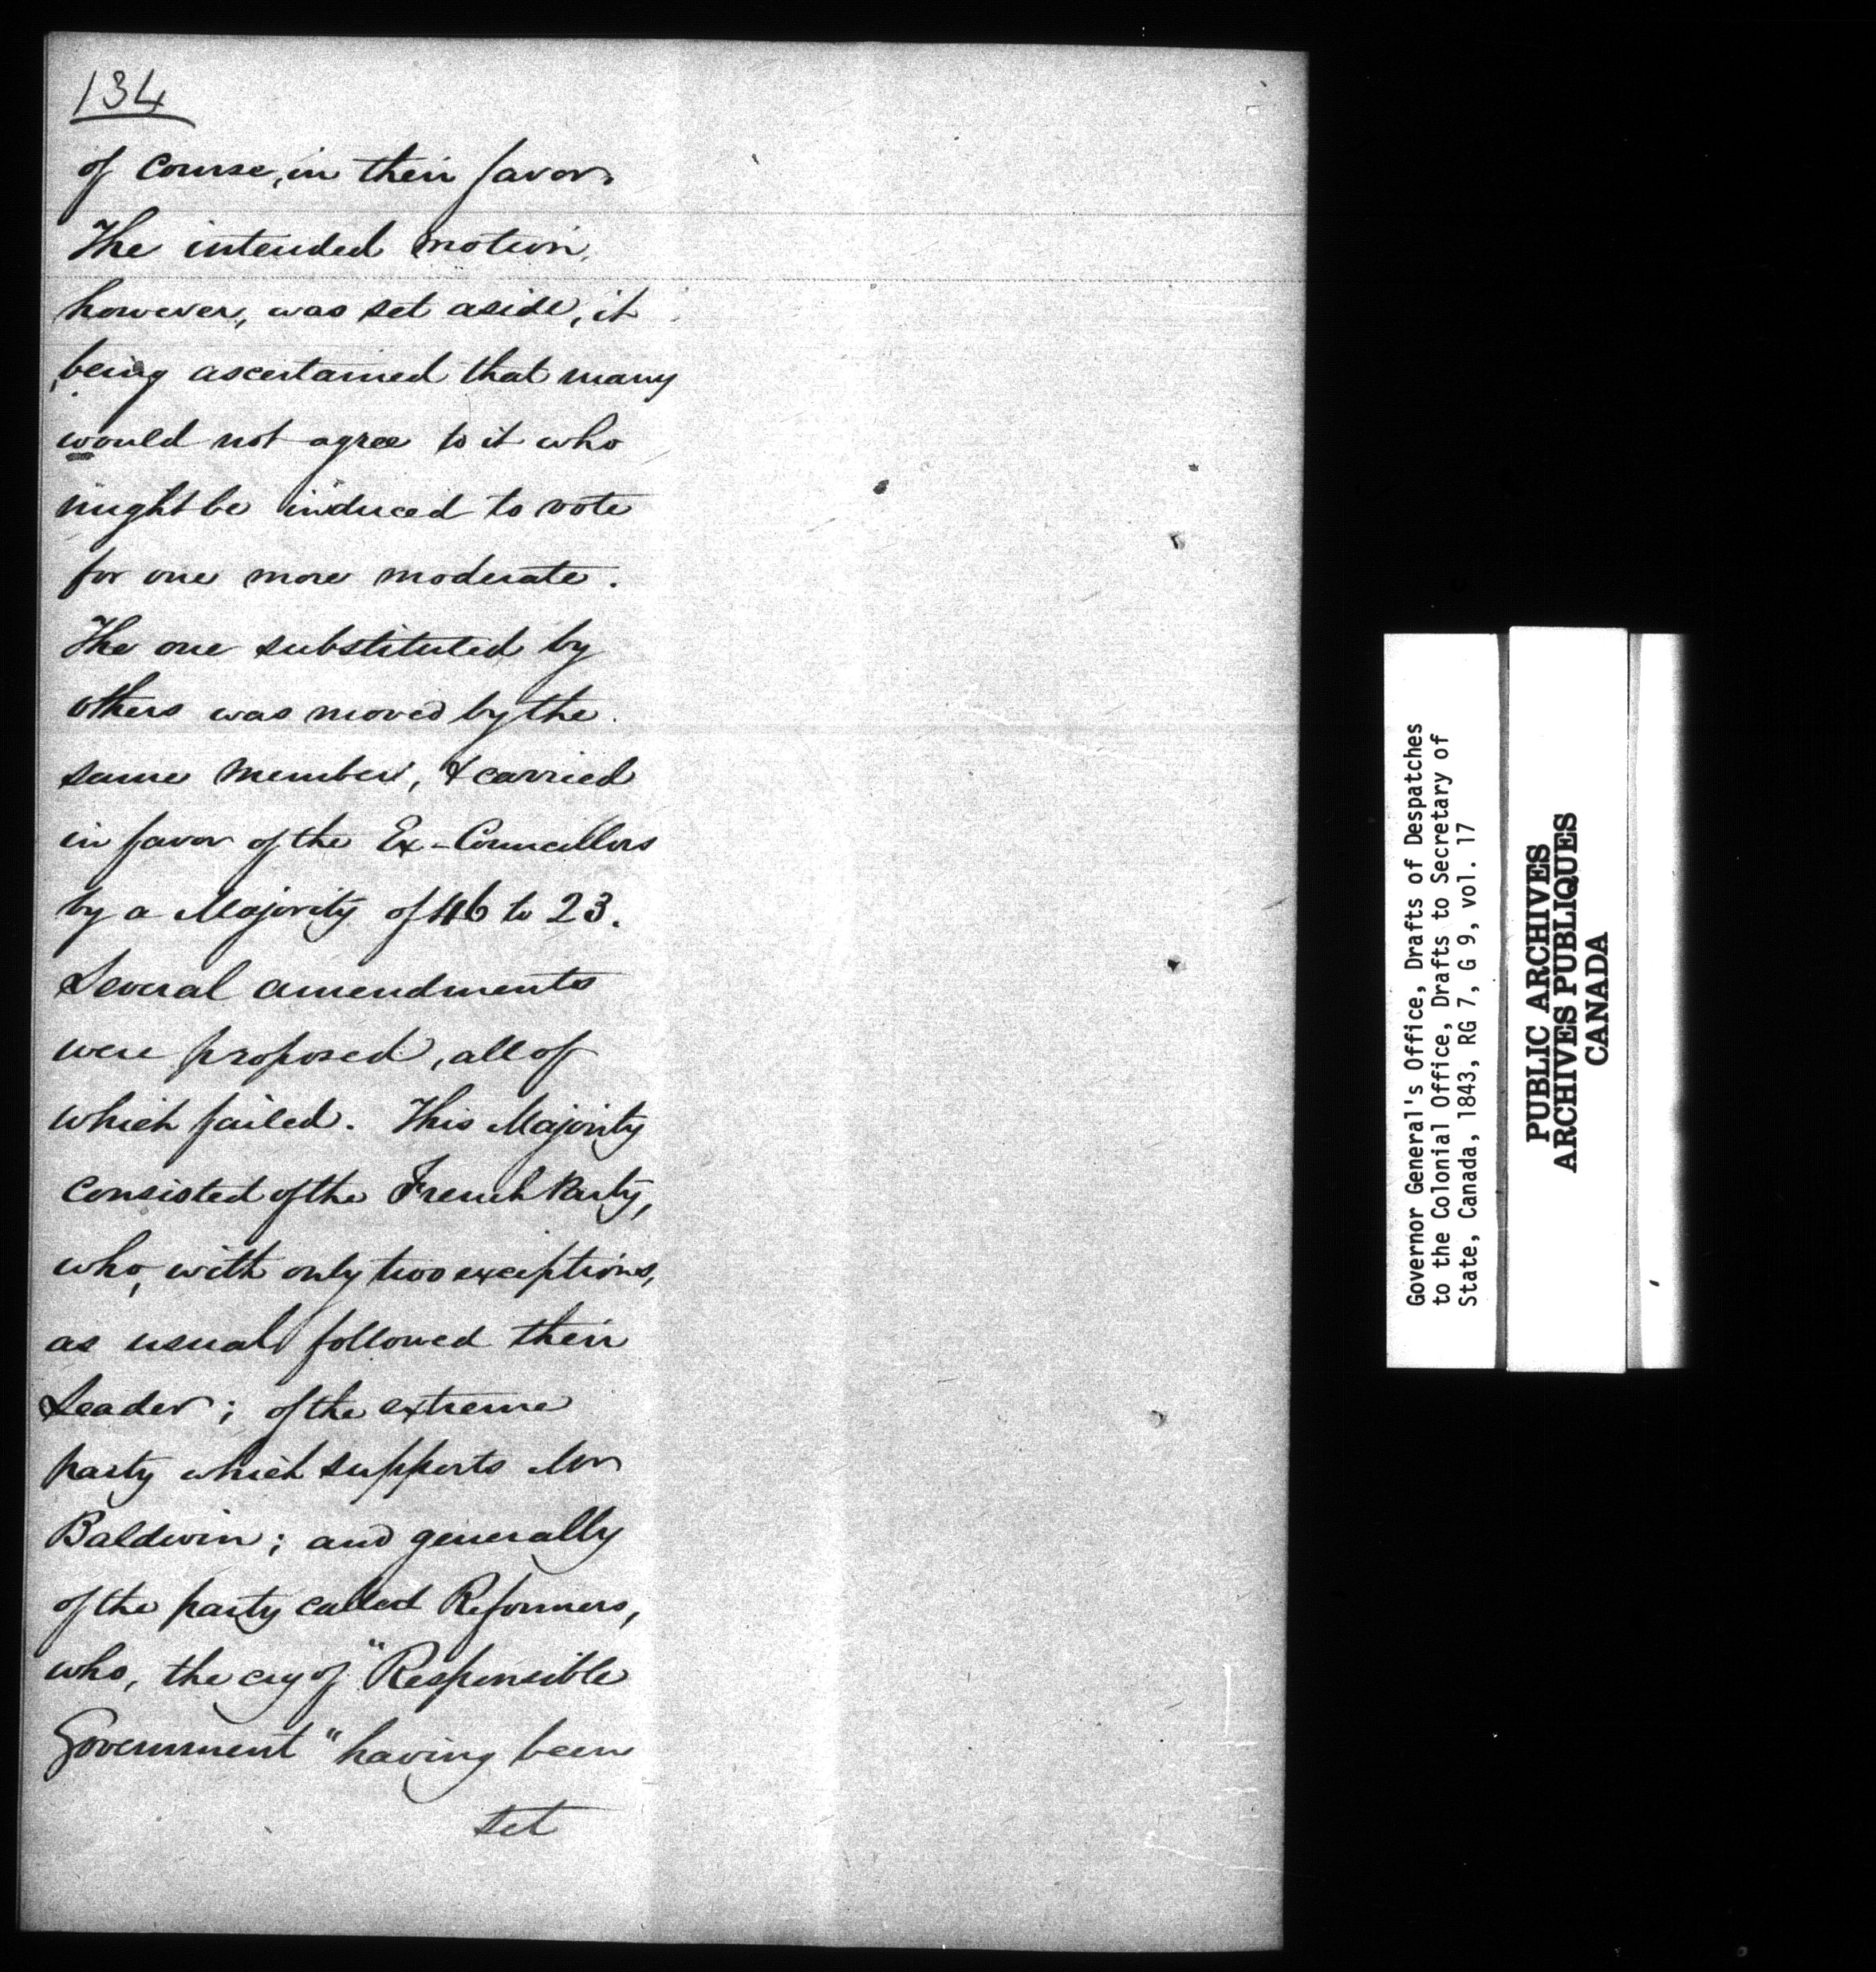 134
of course, in their favor.
The intended motion,
however, was set aside, it
being ascertained that many
would not agree to it who
might be induced to vote
for one more moderate.
The one substituted by
others was moved by the
same member, & carried
in favor of the Ex-Councillors
by a Majority of 46 to 23.
Several amendments
were proposed, all of
which failed. This Majority
consisted of the French Party,
who, with only two exceptions,
as usual followed their
Leader; of the extreme
party which supports Mr
Baldwin; and generally
of the party called Reformers,
who, the cry of "Responsible
Government" having been
set
Governor General's Office, Drafts of Despatches
to the Colonial Office, Drafts to Secretary of
State, Canada, 1843, RG 7, G 9, vol. 17
PUBLIC ARCHIVES
ARCHIVES PUBLIQUES
CANADA